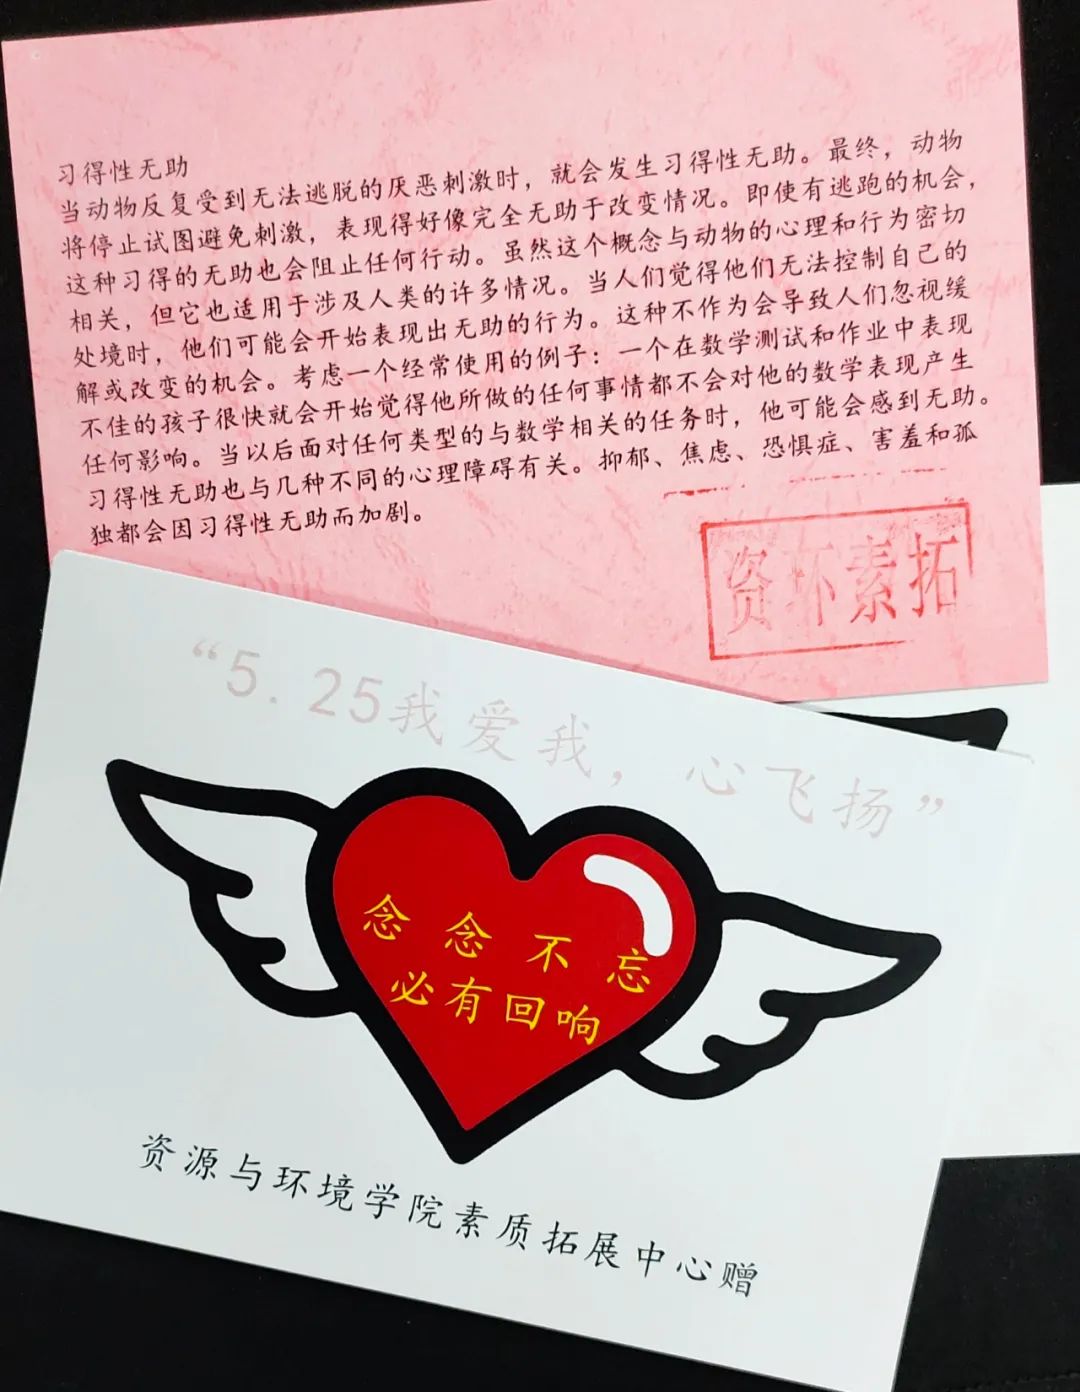 习得性无助
当动物反复受到无法逃脱的厌恶刺激时，就会发生习得性无助。最终，动物
将停止试图避免刺激，表现得好像完全无助于改变情况。即使有逃跑的机会，
这种习得的无助也会阻止任何行动。虽然这个概念与动物的心理和行为密切
相关，但它也适用于涉及人类的许多情况。当人们觉得他们无法控制自己的
处境时，他们可能会开始表现出无助的行为。这种不作为会导致人们忽视缓
解或改变的机会。考虑一个经常使用的例子：一个在数学测试和作业中表现
不佳的孩子很快就会开始觉得他所做的任何事情都不会对他的数学表现产生
任何影响。当以后面对任何类型的与数学相关的任务时，他可能会感到无助。
习得性无助也与几种不同的心理障碍有关。抑郁、焦虑、恐惧症、害羞和孤
独都会因习得性无助而加剧。
资环素拓
“5.25我爱我，心飞扬”
念念不忘
必有回响
资源与环境学院素质拓展中心赠